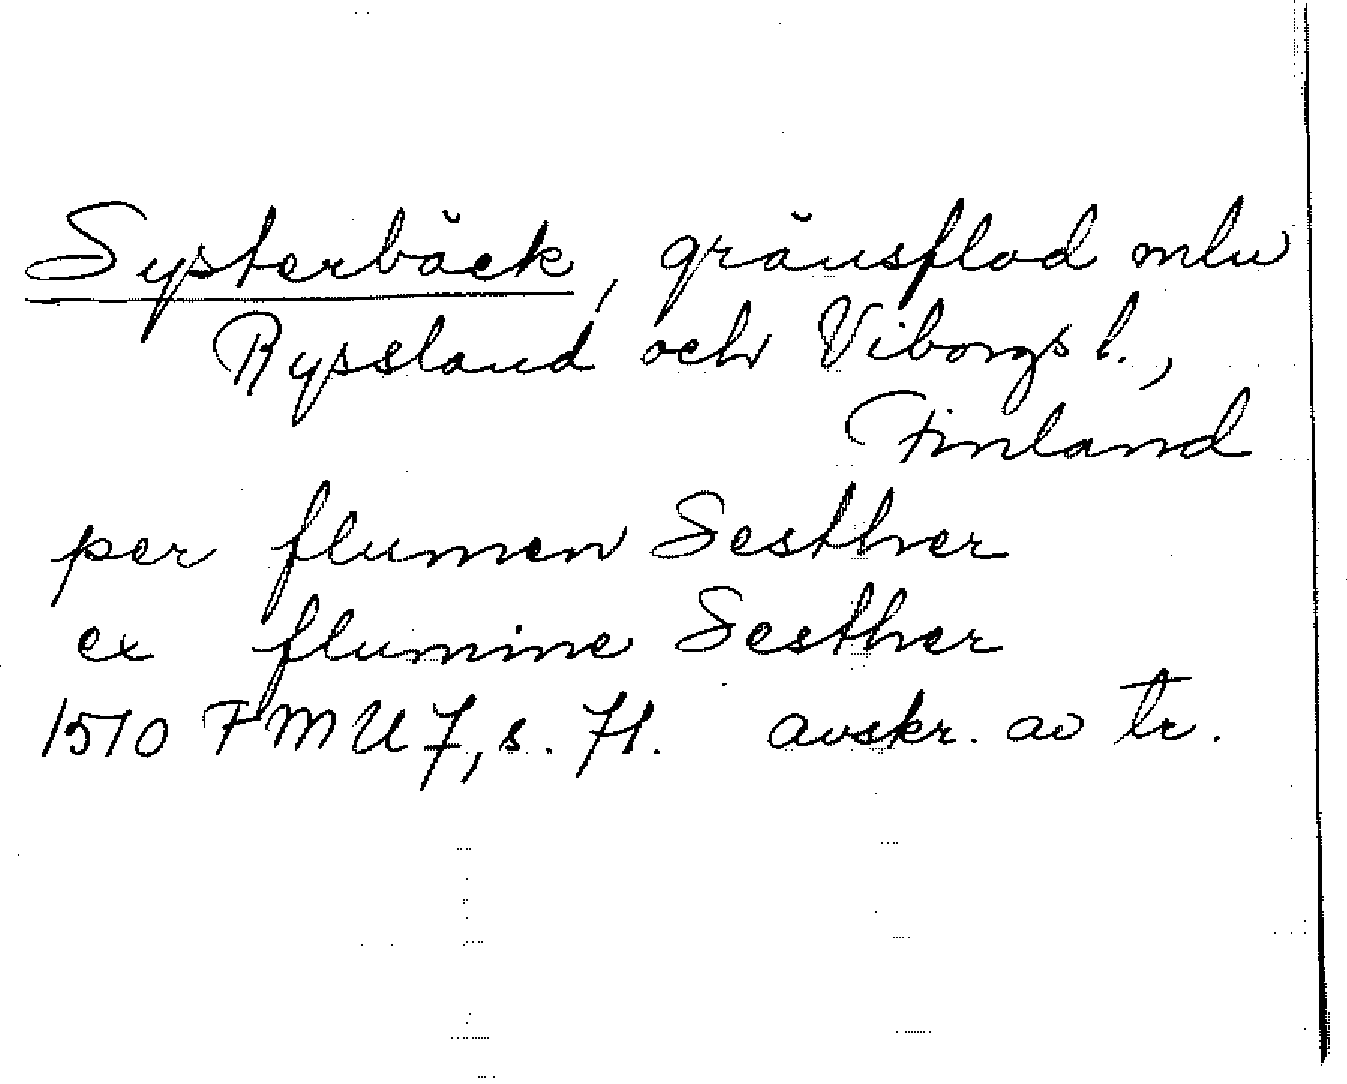 Systerbäck, gränsflod mln
Ryssland och Viborgs l.,
Finland
per flumen Sesther
ex flumine Sesther
1510 FMU 7, s. 71. avskr. av tr.